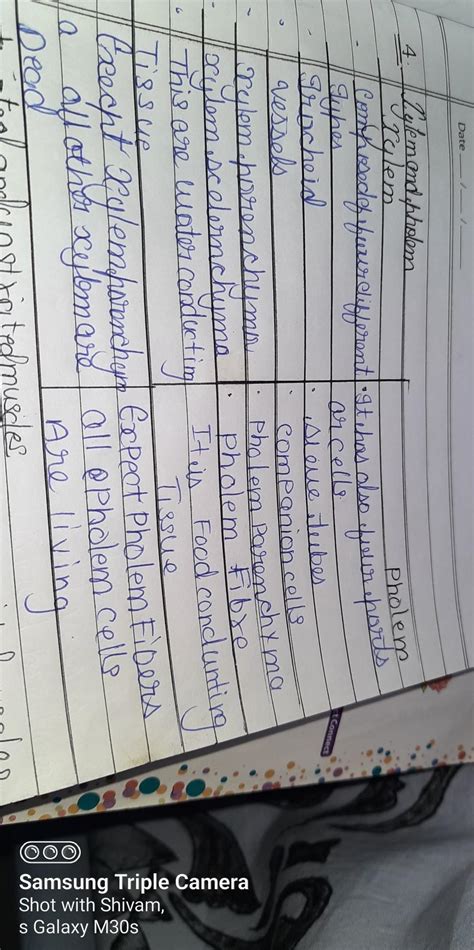 Date
4. Xylem and pholem
Xylem
Pholem
Composed of four different
types
• It has also four parts
or cells.
Trincheid
• Sieve tubes
vessels
• companion cells
Xylem parenchyma
• Pholem Parenchyma
Xylem sclernchyma
• Pholem Fibre
This are water conducting
Tissue
It is Food conducting
Tissue
Execpt Xylem parenchym
a all other xylem are
Dead
Expect Pholem Fibers
all o pholem cells
Are living
muscles
Connect
Samsung Triple Camera
Shot with Shivam,
s Galaxy M30s